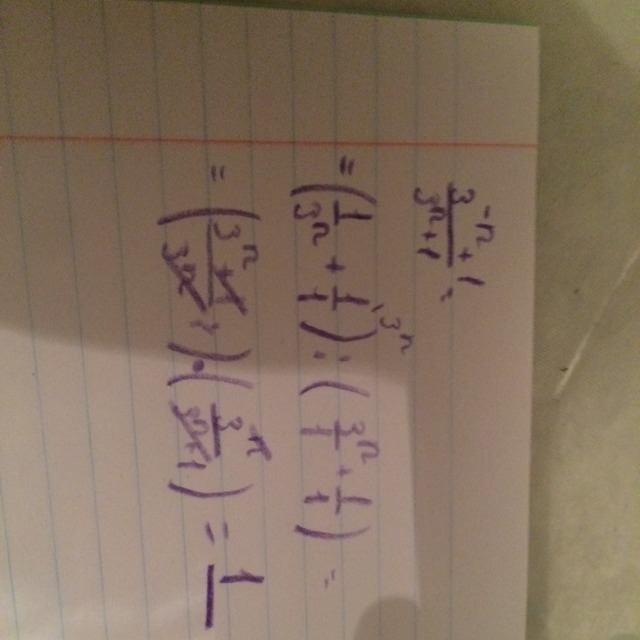 (3^-n + 1)/(3^n + 1) =
= (1/3^n + 1/1) : (3^n/1 + 1/1) =
= ((3^n + 1)/3^n) · (3^n/(3^n + 1)) = 1